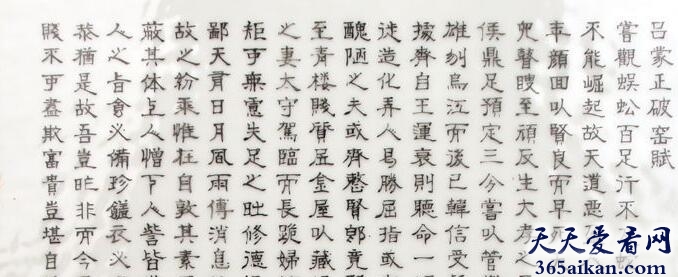 呂蒙正破窑賦
嘗觀蜈蚣百足行不
不能崛起故天道惡
顏回以賢良而早死
兇瞽瞍至頑反生大孝之
侯鼎足預定三分嘗以管
雄刎烏江而後已韓信受
據齊自王運衰則聽命一
徒造化弄人曷勝屈指或
醜陋之夫或齊憨賢郎竟
至青楼賤五金屋以藏
之妻太守駕臨而長跪婦
矩乎無憲失足之修德
鄙天有日月風雨傳消息
故之紛乘惟在自敦其素
蔽其体上人憎下人訾皆
人之旨食必備珍饈衣必
恭猶是故吾豈昨非而今
賤不可盡欺富貴豈堪自
天天爱看网
www.ttaikan.com